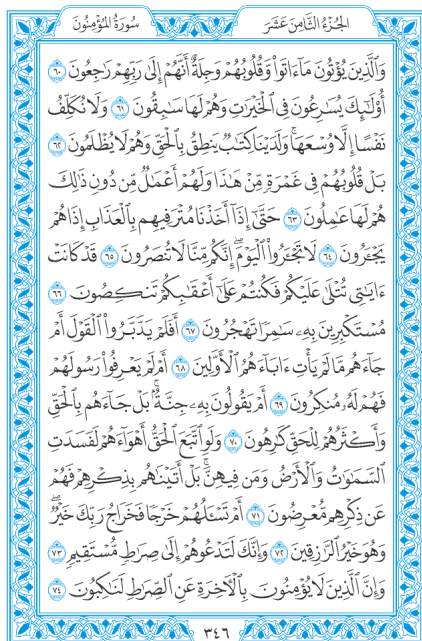 الجُزْءُ الثَّامِنَ عَشَرَ
سُورَةُ المُؤْمِنُونَ
وَٱلَّذِينَ يُؤْتُونَ مَآ ءَاتَوا۟ وَّقُلُوبُهُمْ وَجِلَةٌ أَنَّهُمْ إِلَىٰ رَبِّهِمْ رَٰجِعُونَ ٦٠
أُو۟لَٰٓئِكَ يُسَٰرِعُونَ فِى ٱلْخَيْرَٰتِ وَهُمْ لَهَا سَٰبِقُونَ ٦١ وَلَا نُكَلِّفُ
نَفْسًا إِلَّا وُسْعَهَا ۖ وَلَدَيْنَا كِتَٰبٌ يَنطِقُ بِٱلْحَقِّ وَهُمْ لَا يُظْلَمُونَ ٦٢
بَلْ قُلُوبُهُمْ فِى غَمْرَةٍ مِّنْ هَٰذَا وَلَهُمْ أَعْمَٰلٌ مِّن دُونِ ذَٰلِكَ
هُمْ لَهَا عَٰمِلُونَ ٦٣ حَتَّىٰٓ إِذَآ أَخَذْنَا مُتْرَفِيهِم بِٱلْعَذَابِ إِذَا هُمْ
يَجْـَٔرُونَ ٦٤ لَا تَجْـَٔرُوا۟ ٱلْيَوْمَ ۖ إِنَّكُم مِّنَّا لَا تُنصَرُونَ ٦٥ قَدْ كَانَتْ
ءَايَٰتِى تُتْلَىٰ عَلَيْكُمْ فَكُنتُمْ عَلَىٰٓ أَعْقَٰبِكُمْ تَنكِصُونَ ٦٦
مُسْتَكْبِرِينَ بِهِۦ سَٰمِرًا تَهْجُرُونَ ٦٧ أَفَلَمْ يَدَّبَّرُوا۟ ٱلْقَوْلَ أَمْ
جَآءَهُم مَّا لَمْ يَأْتِ ءَابَآءَهُمُ ٱلْأَوَّلِينَ ٦٨ أَمْ لَمْ يَعْرِفُوا۟ رَسُولَهُمْ
فَهُمْ لَهُۥ مُنكِرُونَ ٦٩ أَمْ يَقُولُونَ بِهِۦ جِنَّةٌۢ ۚ بَلْ جَآءَهُم بِٱلْحَقِّ
وَأَكْثَرُهُمْ لِلْحَقِّ كَٰرِهُونَ ٧٠ وَلَوِ ٱتَّبَعَ ٱلْحَقُّ أَهْوَآءَهُمْ لَفَسَدَتِ
ٱلسَّمَٰوَٰتُ وَٱلْأَرْضُ وَمَن فِيهِنَّ ۚ بَلْ أَتَيْنَٰهُم بِذِكْرِهِمْ فَهُمْ
عَن ذِكْرِهِم مُّعْرِضُونَ ٧١ أَمْ تَسْـَٔلُهُمْ خَرْجًا فَخَرَاجُ رَبِّكَ خَيْرٌ ۖ
وَهُوَ خَيْرُ ٱلرَّٰزِقِينَ ٧٢ وَإِنَّكَ لَتَدْعُوهُمْ إِلَىٰ صِرَٰطٍ مُّسْتَقِيمٍ ٧٣
وَإِنَّ ٱلَّذِينَ لَا يُؤْمِنُونَ بِٱلْءَاخِرَةِ عَنِ ٱلصِّرَٰطِ لَنَٰكِبُونَ ٧٤
٣٤٦